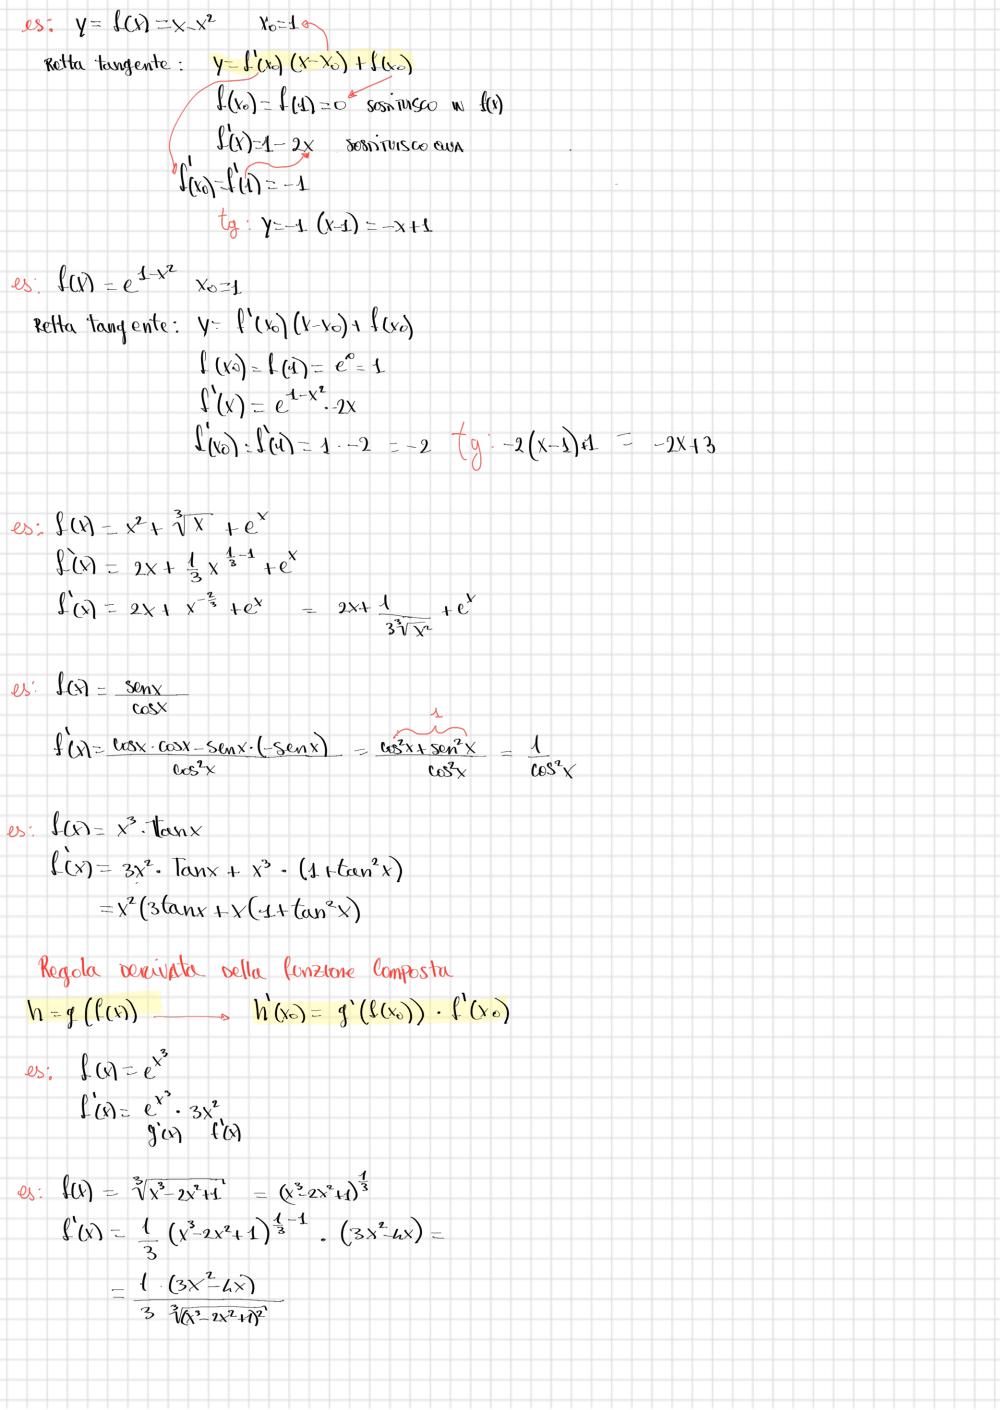 es: y = f(x) = x-x² x₀=1
Retta tangente: y=f'(x₀)(x-x₀)+f(x₀)
f(x₀)=f(1)=0 sostituisco in f(x)
f'(x)=1-2x sostituisco qua
f'(x₀)=f'(1)=-1
tg: y=-1(x-1)=-x+1
es: f(x)=e^{1-x²} x₀=1
Retta tangente: y= f'(x₀)(x-x₀)+f(x₀)
f(x₀)=f(1)=e⁰=1
f'(x)=e^{1-x²}·-2x
f'(x₀)=f'(1)=1·-2=-2 tg: -2(x-1)+1 = -2x+3
es: f(x)=x²+∛x+e^x
f'(x)=2x+1/3 x^{1/3-1}+e^x
f'(x)=2x+x^{-2/3}+e^x = 2x+1/(3∛x²)+e^x
es: f(x)=senx/cosx
f'(x)=(cosx·cosx-senx·(-senx))/cos²x = (cos²x+sen²x)/cos²x = 1/cos²x
1
es: f(x)=x³·tanx
f'(x)=3x²·Tanx+x³·(1+tan²x)
=x²(3tanx+x(1+tan²x)
Regola derivata della funzione composta
h=g(f(x)) → h'(x₀)=g'(f(x₀))·f'(x₀)
es: f(x)=e^{x³}
f'(x)=e^{x³}·3x²
g'(x) f'(x)
es: f(x)=∛(x³-2x²+1) = (x³-2x²+1)^{1/3}
f'(x)=1/3 (x³-2x²+1)^{1/3-1}·(3x²-4x)=
= 1·(3x²-4x)/(3 ∛(x³-2x²+1)²)